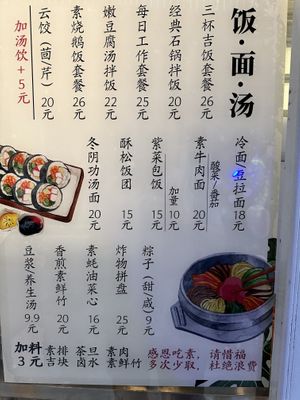 饭·面·汤
三杯吉饭套餐 26元
经典石锅拌饭 20元
每日工作套餐 25元
嫩豆腐汤拌饭 22元
素烧鹅饭套餐 26元
云饺(茴芹) 20元
加汤饮+5元
冷面(豆拉面 18元
酸菜/番茄
素牛肉面 20元
加量 10元
紫菜包饭 15元
酥松饭团 15元
冬阴功汤面 20元
粽子(甜咸) 9元
炸物拼盘 25元
素蚝油菜心 16元
香煎素鲜竹 20元
豆浆养生汤 9.9元
加料3元
素排 素吉块
茶卤旦 水
素肉 素鲜竹
感恩吃素,请惜福
多次少取,杜绝浪费